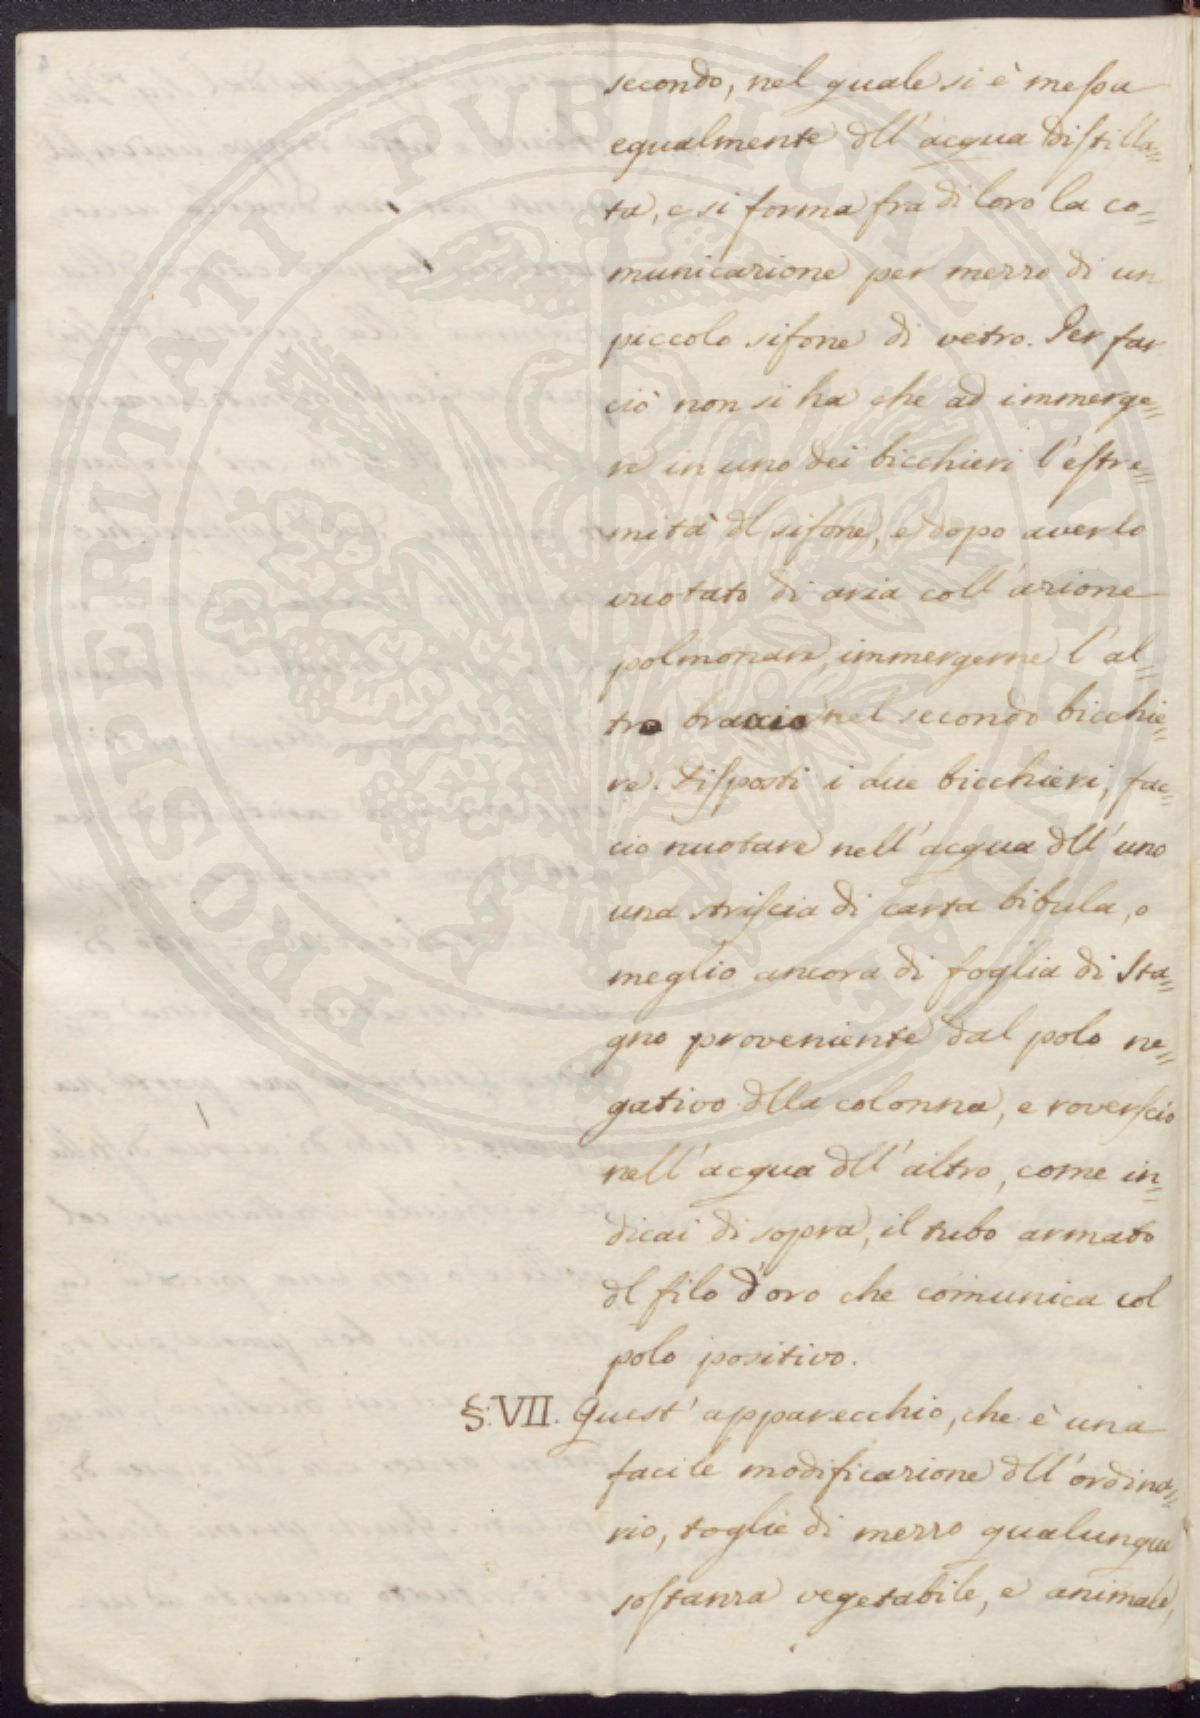 secondo, nel quale si è meſsa
egualmente dll' acqua diſtilla=
ta, e si forma fra di loro la co=
municazione per mezzo di un
piccolo sifone di vetro. Per far
ciò non si ha che ad immerge=
re in uno dei bicchieri l'eſtre=
mità dl sifone, e dopo averlo
vuotato di aria coll' azione
polmonare, immergerne l' al=
tro braccio nel secondo bicchie=
re. Diſposti i due bicchieri, fac=
cio nuotare nell' acqua dll' uno
una striſcia di carta bibula, o
meglio ancora di foglia di Sta=
gno proveniente dal polo ne=
gativo dlla colonna, e roveſcio
nell' acqua dll' altro, come in=
dicai di sopra, il tubo armato
dl filo d'oro che comunica col
polo positivo.
§: VII. Quest' apparecchio, che è una
facile modificazione dll' ordina=
rio, toglie di mezzo qualunque
soſtanza vegetabile, e animale,
PROSPERITATI PVBLICAE AVGENDAE